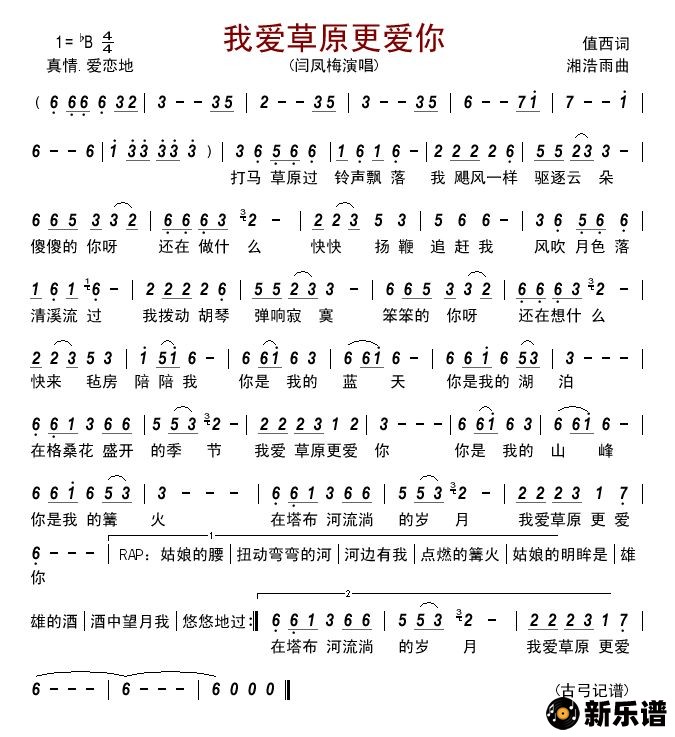 我爱草原更爱你
1=♭B 4/4
值西词
真情.爱恋地
(闫凤梅演唱)
湘浩雨曲
( 6 66 6 32 | 3 - - 35 | 2 - - 35 | 6 - - 7i | 7 - - i |
6 - - 6 | i 33 33 3 ) | 3 6 5 6 6 | 1 6 1 6 - | 2 2 2 2 6 | 5 5 23 3 |
打马 草原过 铃声飘 落 我 飓风一样 驱逐云 朵
6 6 5 3 3 2 | 6 6 6 3 3 2 - | 2 2 3 5 3 | 2 1 6 - | 3 6 5 6 |
傻傻的 你呀 还在 做什 么 快快 扬 鞭 追 赶 我 风吹 月色 落
1 6 1 1 6 - | 2 2 2 2 6 | 5 5 2 3 - | 6 6 5 3 3 2 | 6 6 6 3 3 2 - |
清溪流 过 我拨动 胡琴 弹响寂 寞 笨笨的 你呀 还在想什 么
2 2 3 5 3 | 1 5i 6 - | 6 6i 3 - | 6 6i 6 - | 6 6 i 6 53 | 3 - - - |
快来 毡房 陪陪 我 你是 我的 蓝 天 你是我的 湖 泊
6 6 1 3 6 6 | 5 5 3 3 2 - | 2 2 2 3 1 2 | 3 - - - | 6 6i 3 - | 6 6i 6 - |
在格桑花 盛开 的季 节 我爱 草原更爱 你 你是 我的 山 峰
6 6 i 6 5 3 | 3 - - - | 6 6 1 3 6 6 | 5 5 3 3 2 - | 2 2 2 3 1 7 |
你是我 的篝 火 在塔布 河流淌 的岁 月 我爱草原 更 爱
1
6 - - - | RAP: 姑娘的腰 | 扭动弯弯的河 | 河边有我 | 点燃的篝火 | 姑娘的明眸是 | 雄
你
2
雄的酒 | 酒中望月我 | 悠悠地过:‖ 6 6 1 3 6 6 | 5 5 3 3 2 - | 2 2 2 3 1 7 |
在塔布 河流淌 的岁 月 我爱草原 更爱
6 - - - | 6 - - - | 6 0 0 0 ‖
(古弓记谱)
新乐谱